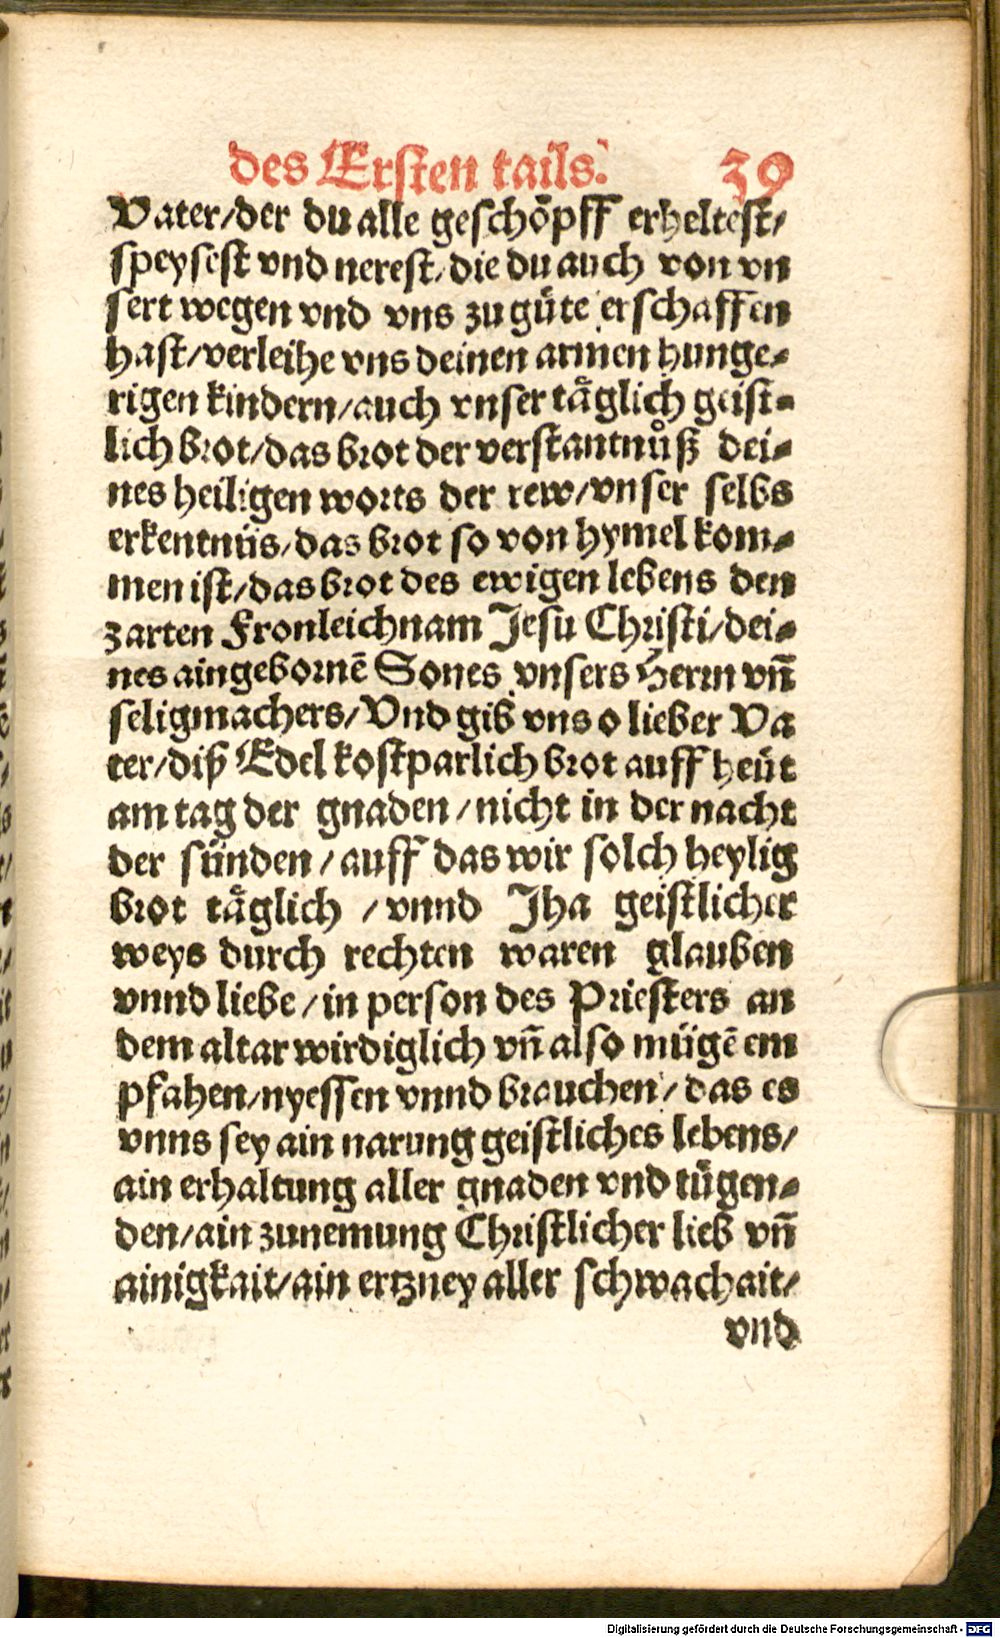 des Ersten tails. 39
Vater/der du alle geschöpff erheltest/
speysest vnd nerest/die du auch von vn
sert wegen vnd vns zu güte erschaffen
hast/verleihe vns deinen armen hunge⸗
rigen kindern/auch vnser täglich geist⸗
lich brot/das brot der verstantnůß dei⸗
nes heiligen worts der rew/vnser selbs
erkentnüs/das brot so von hymel kom⸗
men ist/das brot des ewigen lebens den
zarten Fronleichnam Jesu Christi/dei⸗
nes aingebornē Sones vnsers Herrn vñ
seligmachers/Vnd gib vns o lieber Va
ter/diß Edel kostparlich brot auff heüt
am tag der gnaden/nicht in der nacht
der sünden/auff das wir solch heylig
brot täglich/vnnd Jha geistlicher
weys durch rechten waren glauben
vnnd liebe/in person des Priesters an
dem altar wirdiglich vñ also mügē em
pfahen/nyessen vnnd brauchen/das es
vnns sey ain narung geistliches lebens/
ain erhaltung aller gnaden vnd tügen⸗
den/ain zunemung Christlicher lieb vñ
ainigkait/ain ertzney aller schwachait/
vnd
Digitalisierung gefördert durch die Deutsche Forschungsgemeinschaft - DFG